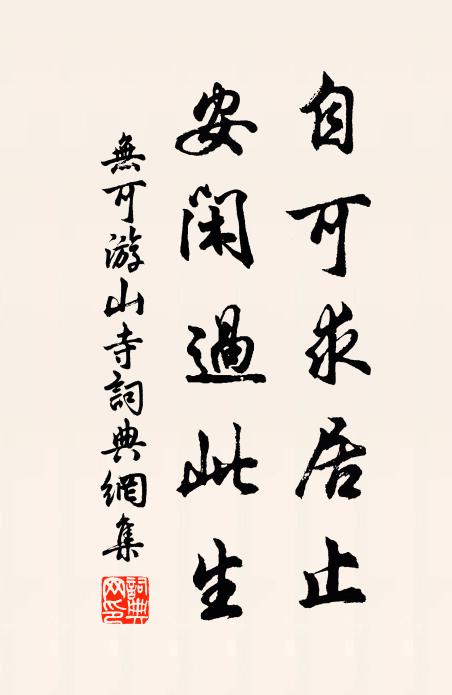 自可求居止
安閑過此生
無可游山寺詞典網集
詞典
网印